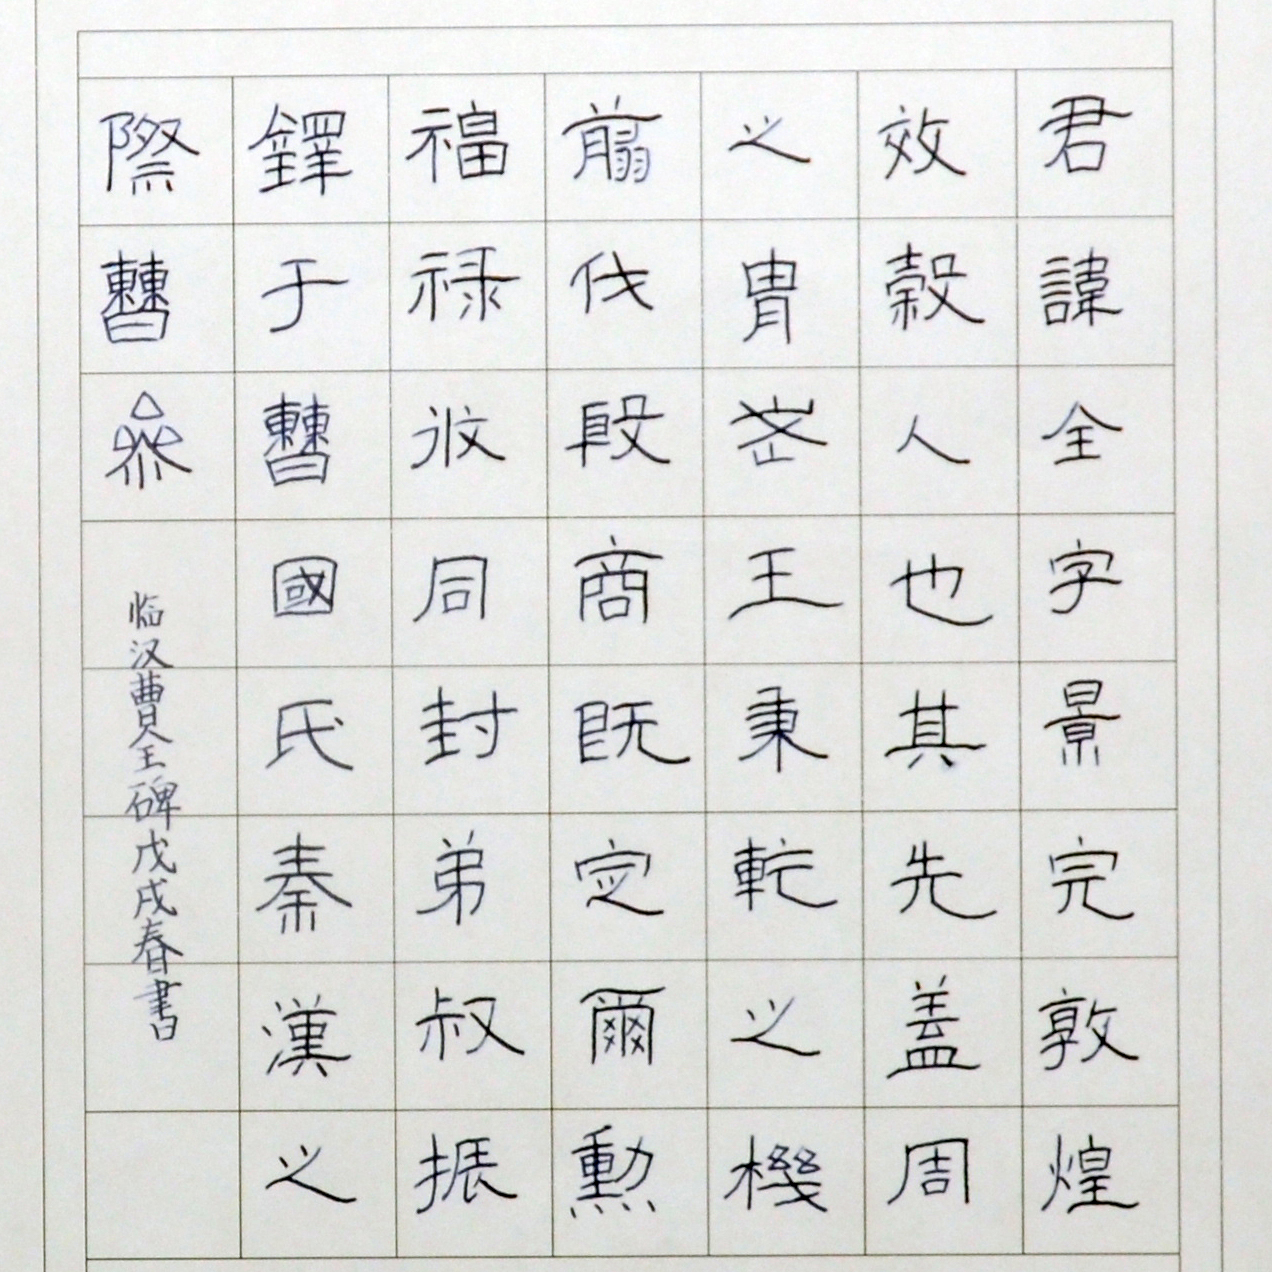 君諱全字景完敦煌
效穀人也其先蓋周
之胄武王秉乾之機
翦伐殷商既定爾勳
福禄攸同封弟叔振
鐸于曹國氏秦漢之
際曹參
临汉曹全碑戊戌春書